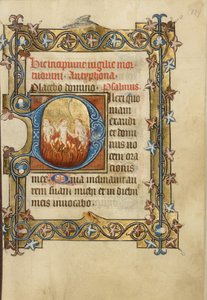 Hic incipiunt vigilie mor
tuorum. Antyphona
Placebo domino. Psalmus.
Dilexi quo
niam
exaudi
et domi
nus vo
cem ora
cionis
mee. Quia inclinavit au
rem suam michi et in diebus
meis invocabo.